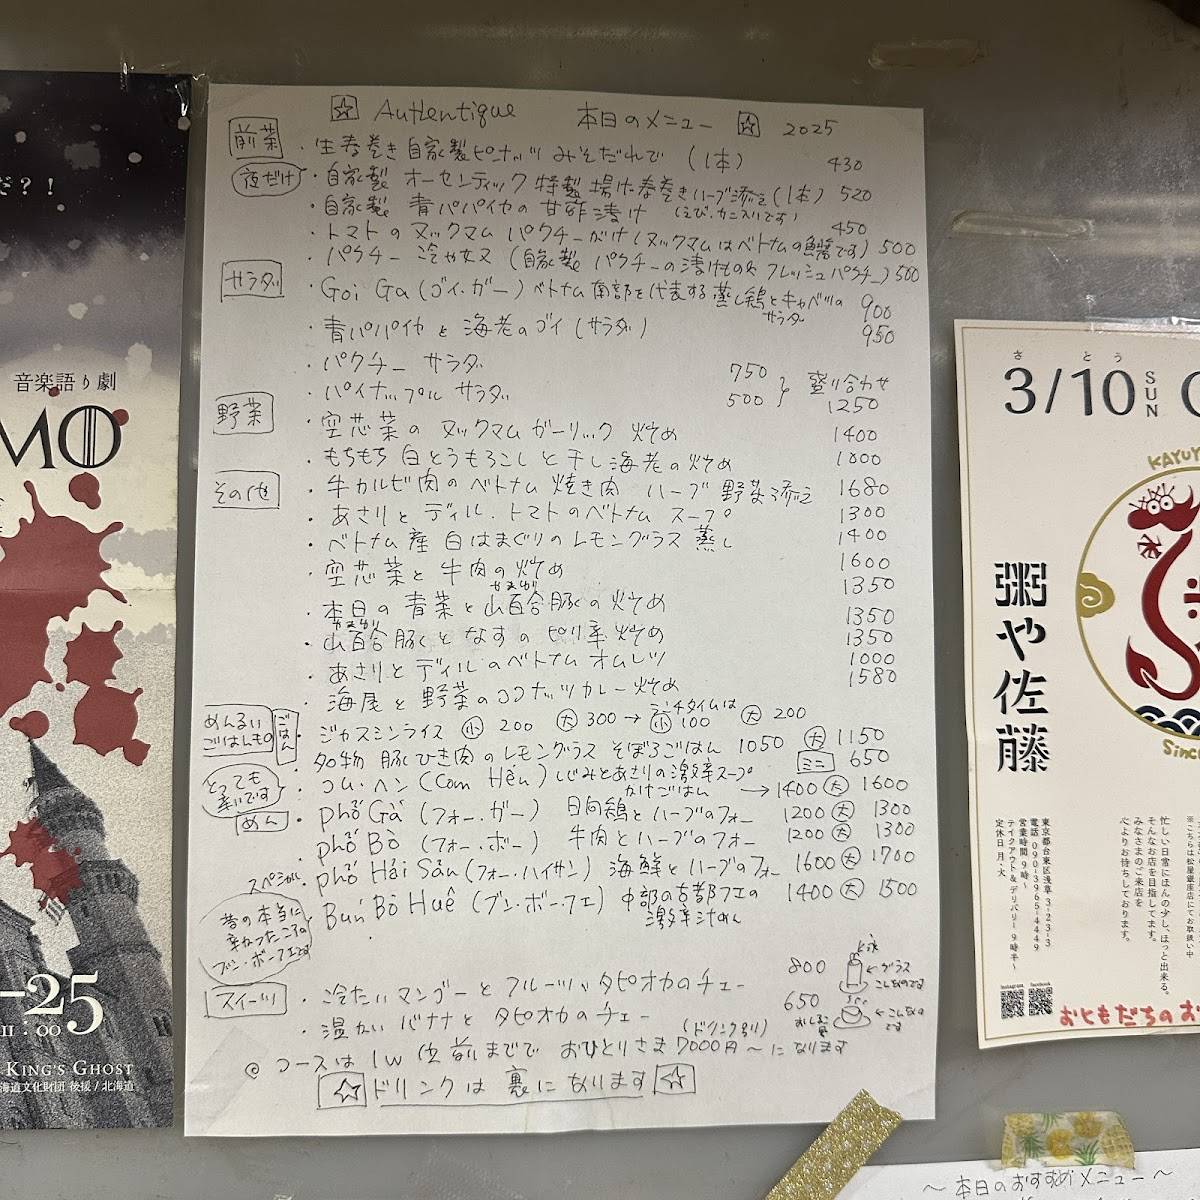 ☆ Authentique 本日のメニュー ☆ 2025
前菜
・生春巻き 自家製ピーナッツみそだれで (1本) 430
夜だけ
・自家製 オーセンティック特製 揚げ春巻きハーブ添え(1本) 520
(えび・カニ入りです)
・自家製 青パパイヤの甘酢漬け 450
・トマトのヌックマム パクチーがけ(ヌックマムはベトナムの魚醤です) 500
・パクチー冷やっこ (自家製 パクチーの漬けもの& フレッシュパクチー) 500
サラダ
・Goi Ga (ゴイ・ガー) ベトナム南部を代表する蒸し鶏とキャベツのサラダ 900
・青パパイヤと海老のゴイ(サラダ) 950
・パクチー サラダ 750
・パイナップル サラダ 500
盛り合わせ 1250
野菜
・空芯菜のヌックマムガーリック炒め 1400
・もちもち白とうもろこしと干し海老の炒め 1000
その他
・牛カルビ肉のベトナム焼き肉 ハーブ野菜添え 1680
・あさりとディル・トマトのベトナムスープ 1300
・ベトナム産白はまぐりのレモングラス蒸し 1400
・空芯菜と牛肉の炒め 1600
・本日の青菜と山百合豚の炒め 1350
・山百合豚となすのピリ辛炒め 1350
・あさりとディルのベトナムオムレツ 1000
・海老と野菜のココナッツカレー炒め 1580
めんるい
ごはんもの
ごはん
・ジャスミンライス 小 200 大 300 → ランチタイムは 小 100 大 200
名物 豚ひき肉のレモングラスそぼろごはん 1050 大 1150
ミニ 650
とっても辛いです
・コム・ヘン (Cơm Hến) しじみとあさりの激辛スープかけごはん → 1400 大 1600
めん
・phở Gà (フォー・ガー) 日向鶏とハーブのフォー 1200 大 1300
・phở Bò (フォー・ボー) 牛肉とハーブのフォー 1200 大 1300
スペシャル
phở Hải Sản (フォー・ハイサン) 海鮮とハーブのフォー 1600 大 1700
・Bún Bò Huế (ブン・ボーフエ) 中部の古都フエの激辛汁めん 1400 大 1500
昔の本当に
辛かったころの
ブン・ボーフエです
スイーツ
・冷たいマンゴーとフルーツ、タピオカのチェー 800
←グラス
こんなのです
・温かいバナナとタピオカのチェー 650
←こんなの
です
(ドリンク別)
@ コースは1w位前までで おひとりさま7000円〜になります
☆ドリンクは裏になります☆
だ?!
音楽語り劇
MO
-25
11:00
KING'S GHOST
海道文化財団 後援/北海道
さとう
3/10 SUN
KAYUY
粥や佐藤
Since
忙しい日常にほんの少し、ほっと出来る。
そんなお店を目指してます。
みなさまのご来店を
心よりお待ちしております。
東京都台東区浅草3-23-3
電話 090-3965-4449
営業時間 9時〜
テイクアウト&デリバリー 9時半〜
定休日 月・火
Instagram
facebook
おともだちのお
〜本日のおすすめメニュー〜